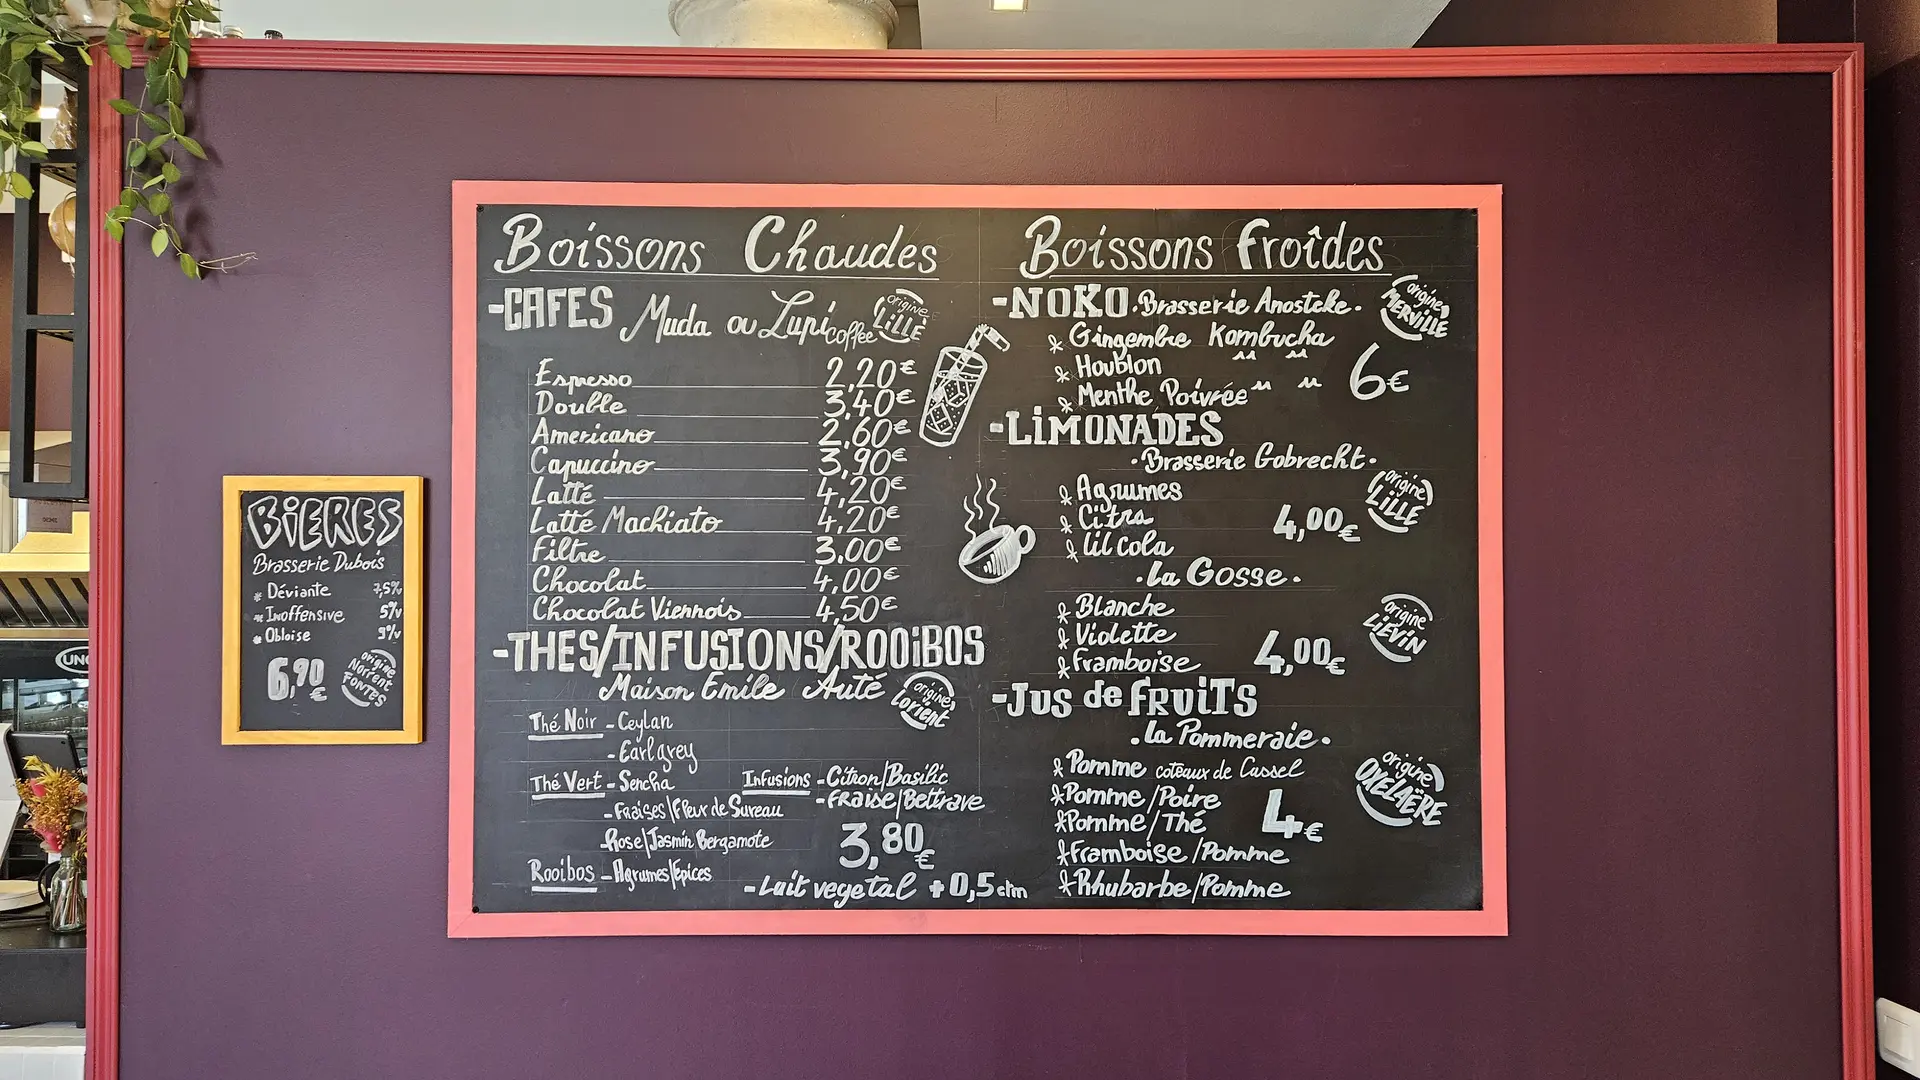 BIERES
Brasserie Dubois
* Déviante 7,5%v
* Inoffensive 5%v
* Obloise 9%v
6,90€
origine NORRENT FONTES
Boissons Chaudes
-CAFES Muda ou Lupi coffee
origine LILLE
Espresso 2,20€
Double 3,40€
Americano 2,60€
Capuccino 3,90€
Latté 4,20€
Latté Machiato 4,20€
Filtre 3,00€
Chocolat 4,00€
Chocolat Viennois 4,50€
-THES/INFUSIONS/ROOiBOS
Maison Emile Auté
origine Lorient
Thé Noir - Ceylan
- Earl grey
Thé Vert - Sencha
- FRaises/Fleur de Sureau
- Rose/Jasmin Bergamote
Rooibos - Agrumes/Epices
Infusions - Citron/Basilic
- FRAise/Bettrave
3,80€
- Lait vegetal +0,5 ctm
Boissons Froîdes
-NOKO • Brasserie Anosteke •
origine MERVILLE
* Gingembre Kombucha
* Houblon " "
* Menthe Poivrée " "
6€
-LiMONADES
• Brasserie Gobrecht •
origine LILLE
* Agrumes
* Citra
* Lil cola
4,00€
• La Gosse •
* Blanche
* Violette
* Framboise
4,00€
origine LiEViN
-JUS de FRUiTS
• La Pommeraie •
* Pomme coteaux de Cassel
* Pomme/Poire
* Pomme/Thé
* Framboise/Pomme
* Rhubarbe/Pomme
4€
origine OXELAËRE